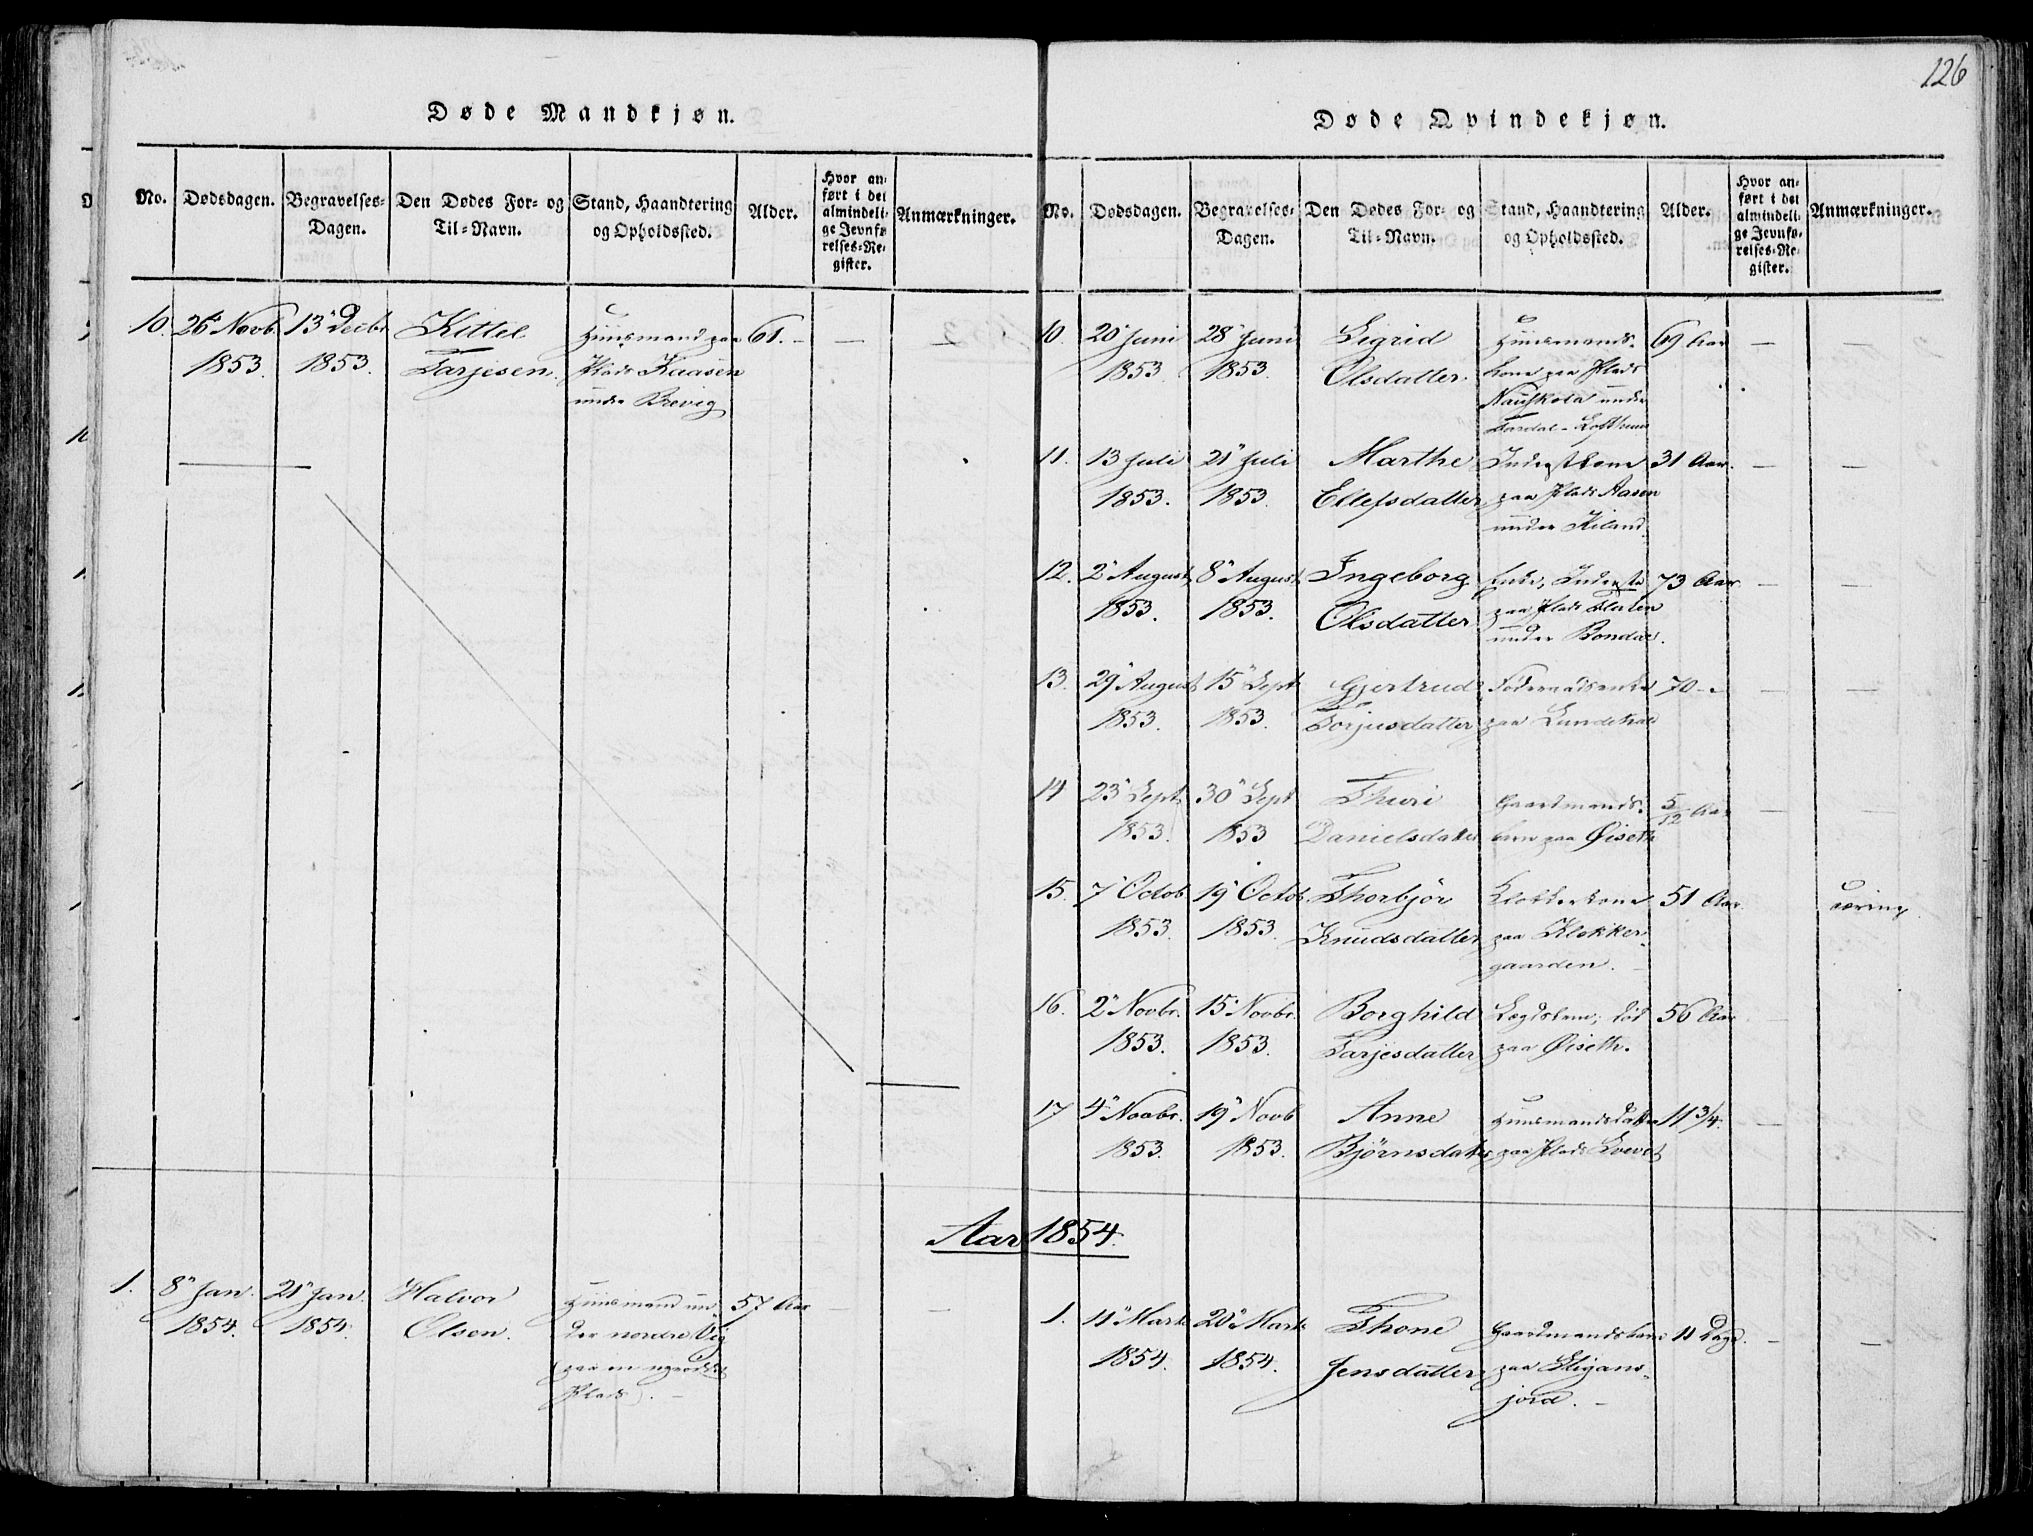 126
Døde Mandkjøn.
No. Dødsdagen. Begravelses-Dagen. Den Dødes For- og Til-Navn. Stand, Haandtering og Opholdssted. Alder. Hvor anført i det almindelige Jevnførelses-Register. Anmærkninger.
10. 26 Novb. 13 Decbr. Kittel Huusmand paa 61. - — —
1853. 1853. Tarjesen. Plads Kaasen
under Brevig
Døde Qvindekjøn.
No. Dødsdagen. Begravelses-Dagen. Den Dødes For- og Til-Navn. Stand, Haandtering og Opholdssted. Alder. Hvor anført i det almindelige Jevnførelses-Register. Anmærkninger.
10. 20 Juni 28 Juni Sigrid Huusmands- 69 Aar — —
1853. 1853. Olsdatter. kone paa Plads
under
11. 13 Juli 21 Juli Marthe Inderstkone 31 Aar. — —
1853. 1853. Ellefsdatter paa Plads Aasen
under Kiland.
12. 2 August 8 August Ingeborg Enke, Inderste 73 Aar — —
1853. 1853. Olsdatter paa Plads
under Bondal.
13. 29 August 15 Sept Gjertrud Føderaadsenke 70 - — —
1853. 1853. Torjusdatter paa
14 23 Sept. 30 Sept Thuri Gaardmands- 5/12 Aar — —
1853. 1853 Danielsdatter barn paa Øiseth
15. 7 Octob 19 Octob. Thorbjør Klokkerkone 51 Aar.
1853. 1853. Knudsdatter paa Klokker-
gaarden.
16. 2 Novbr. 15 Novbr. Borghild Lægdslem, død 56 Aar —
1853. 1853. Tarjesdatter paa Øiseth.
17 4 Novbr. 19 Novb Anne Huusmandsdatter 11 3/4. —
1853. 1853. Bjørnsdatter paa Plads
Aar 1854.
1. 8 Jan. 21 Jan. Halvor Huusmand un- 57 Aar — —
1854. 1854. Olsen. der nordre Vig
(paa en
Plads). -
1. 11 Marts 20 Marts Thone Gaardmandsbarn 11 Dage. — —
1854. 1854. Jensdatter paa Stigans-
jord. -